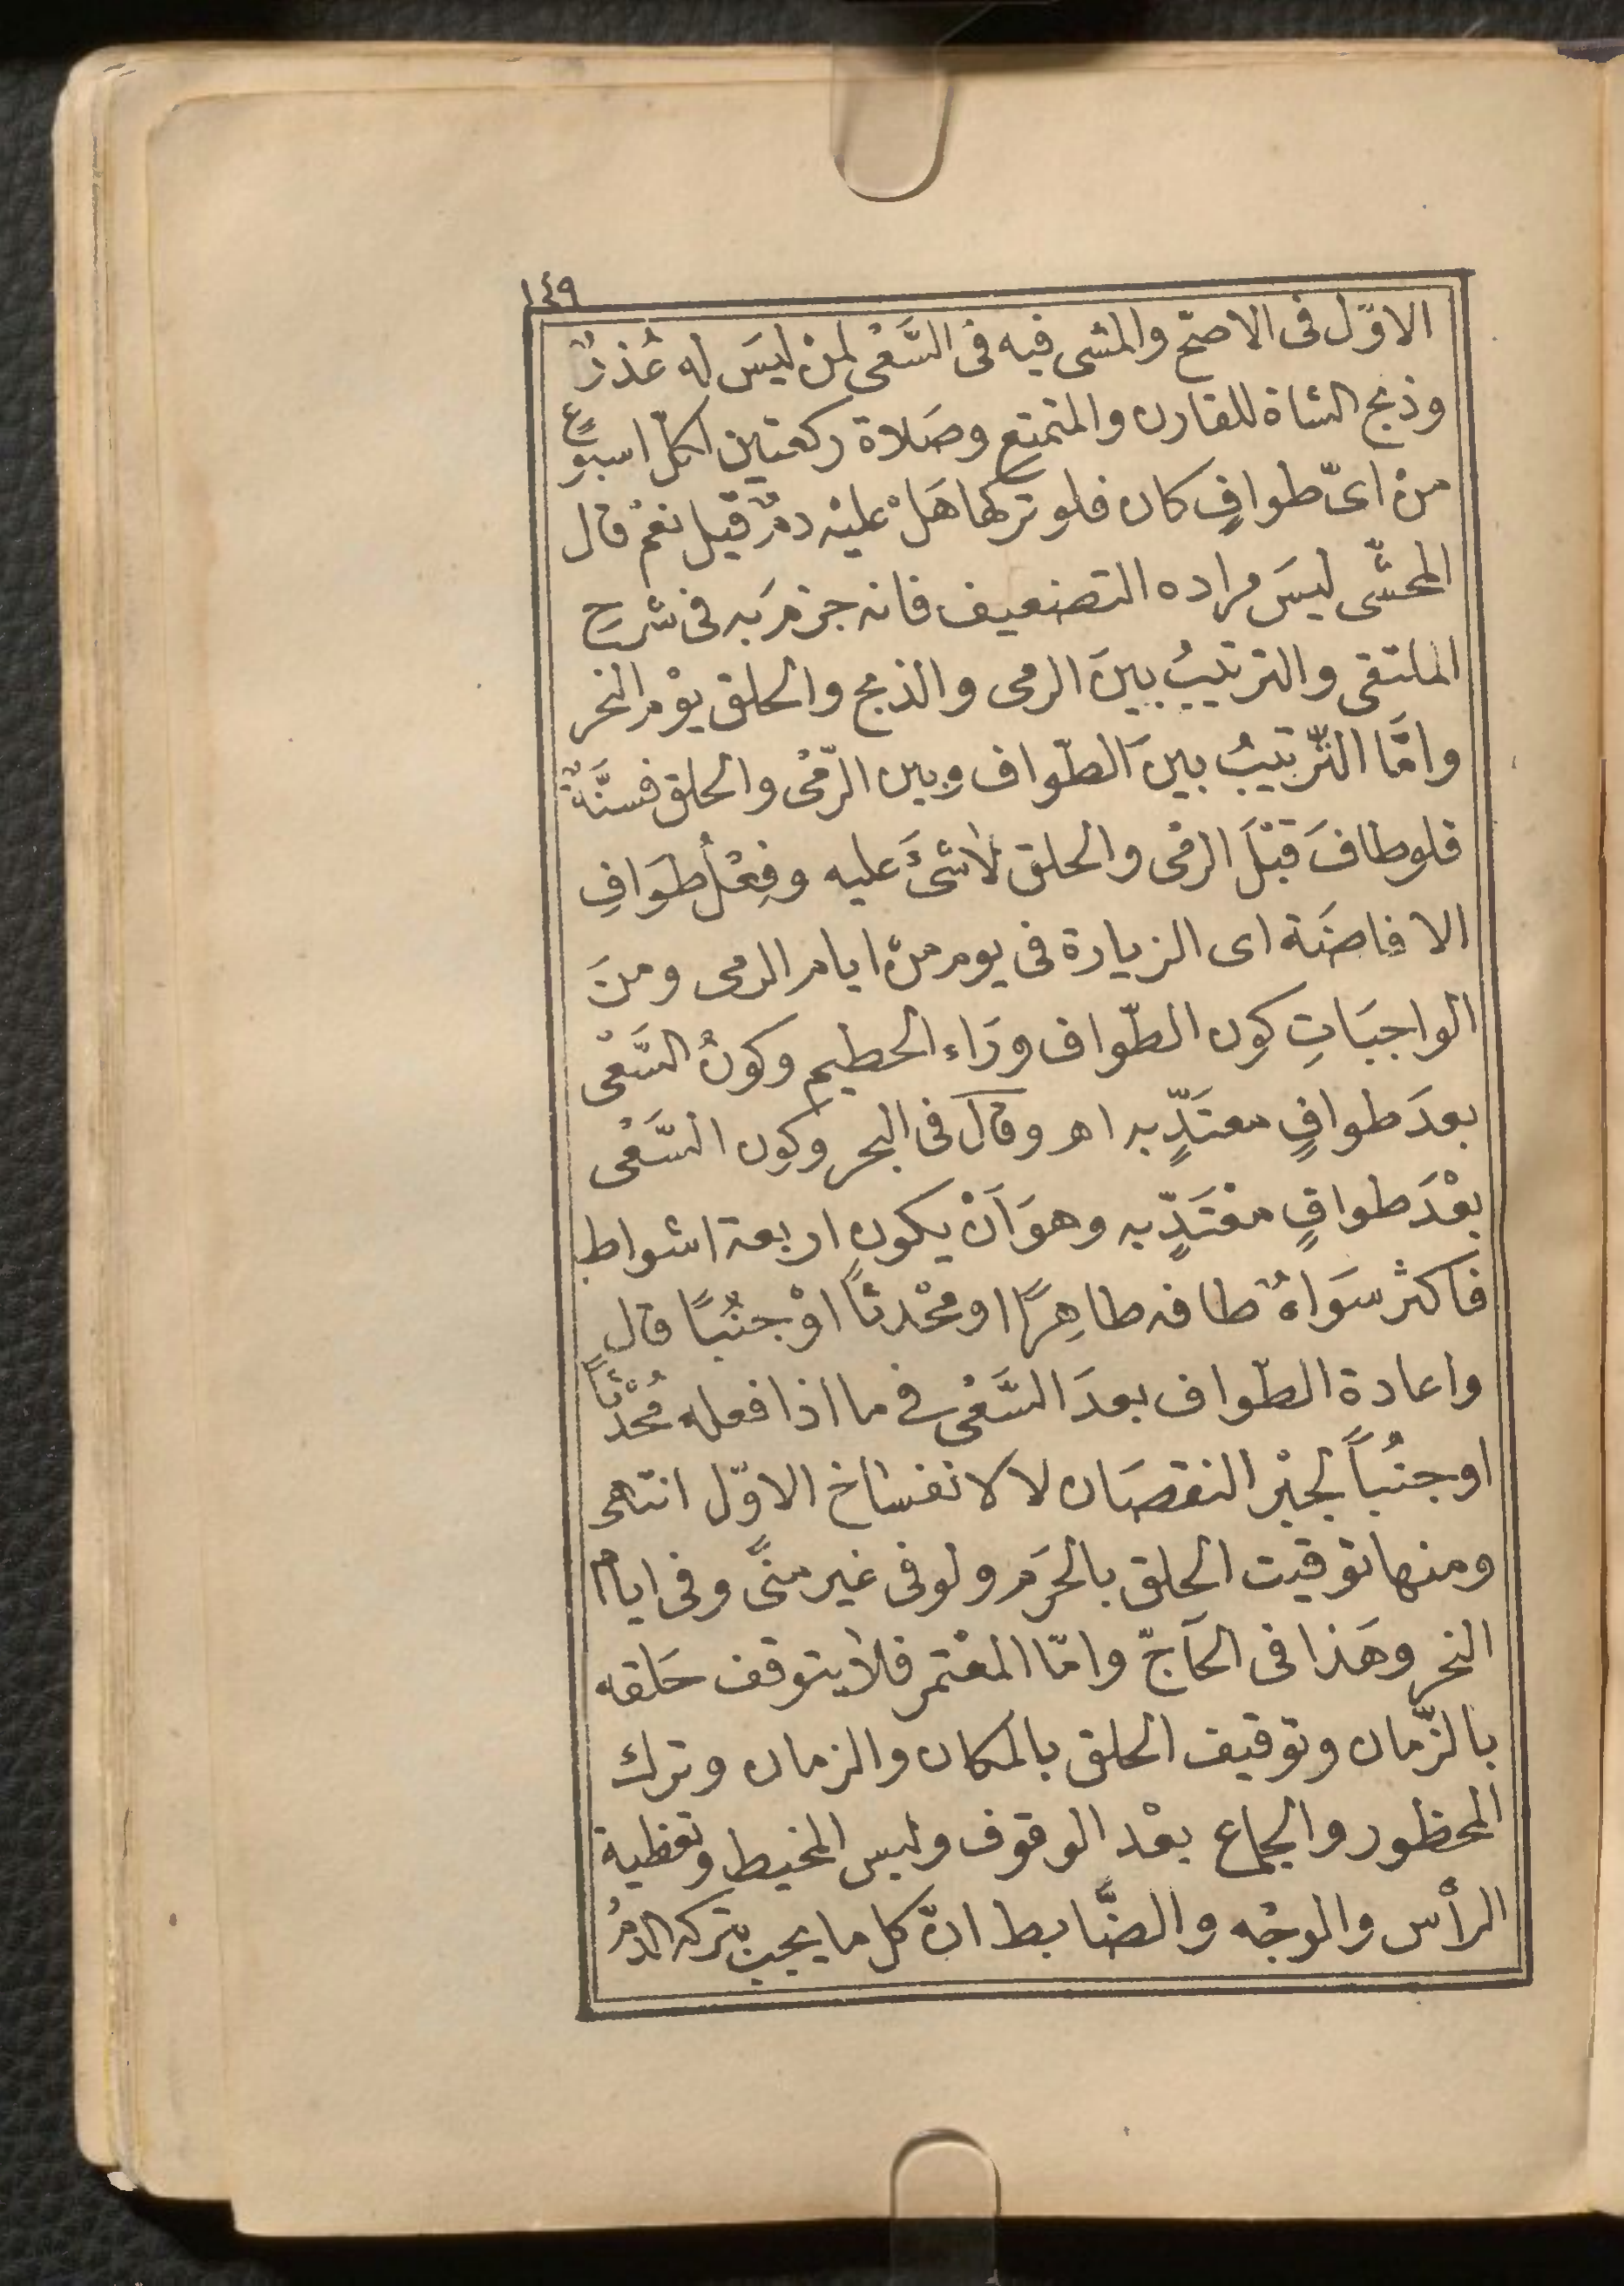 ١٤٩
الاوّل فى الاصحّ والمشى فيه فى السَّعْى لمنْ ليسَ له عُذرٌ
وذبح الشاة للقارن والمتمتع وصَلاة ركعتين لكلّ اسبوعٍ
منْ اىّ طوافٍ كان فلو تركها هَلْ عليْه دمٌ قيل نعَمْ قال
المحشّى ليسَ مراده التضعيف فانه جزمَ به فى شرحِ
الملتقى والترتيبُ بينَ الرمى والذبح والحلق يوْم النحر
وامَّا التّرتيبُ بينَ الطّواف وبين الرّمْى والحلق فسنَّةٌ
فلو طافَ قبْلَ الرمْى والحلق لاشئَ عليه وفِعْلُ طوَافِ
الافاضَة اى الزيارة فى يوم منْ ايام الرمى ومنَ
الواجبَاتِ كون الطّواف ورَاء الحطيم وكونُ السَّعْى
بعدَ طوافٍ معتَدٍّ به اهـ وقالَ فى البحر وكون السَّعْى
بعْدَ طوافٍ معْتَدٍّ به وهوَ اَنْ يكون اربعة اشواط
فاكثر سَوَاءٌ طافه طاهِرًا او محْدثاً اوْ جنُبًا قال
واعادة الطّواف بعدَ السَّعْى فى ما اذا فعله مُحْدثاً
او جنُباً لجبْر النقصَان لا لانفسَاخ الاوّل انتهى
ومنها توقيت الحلق بالحَرَم ولو فى غير منًى وفى ايام
النحر وهَذا فى الحَاجّ وامّا المعْتمر فلا يتوقف حَلقه
بالزّمان وتوقيف الحلق بالمكان والزمان وترك
المحظور والجماع بعْد الوقوف ولبس المخيط وتغطية
الرأس والوجْه والضَّابط انّ كل ما يجب بتركه الدمُ